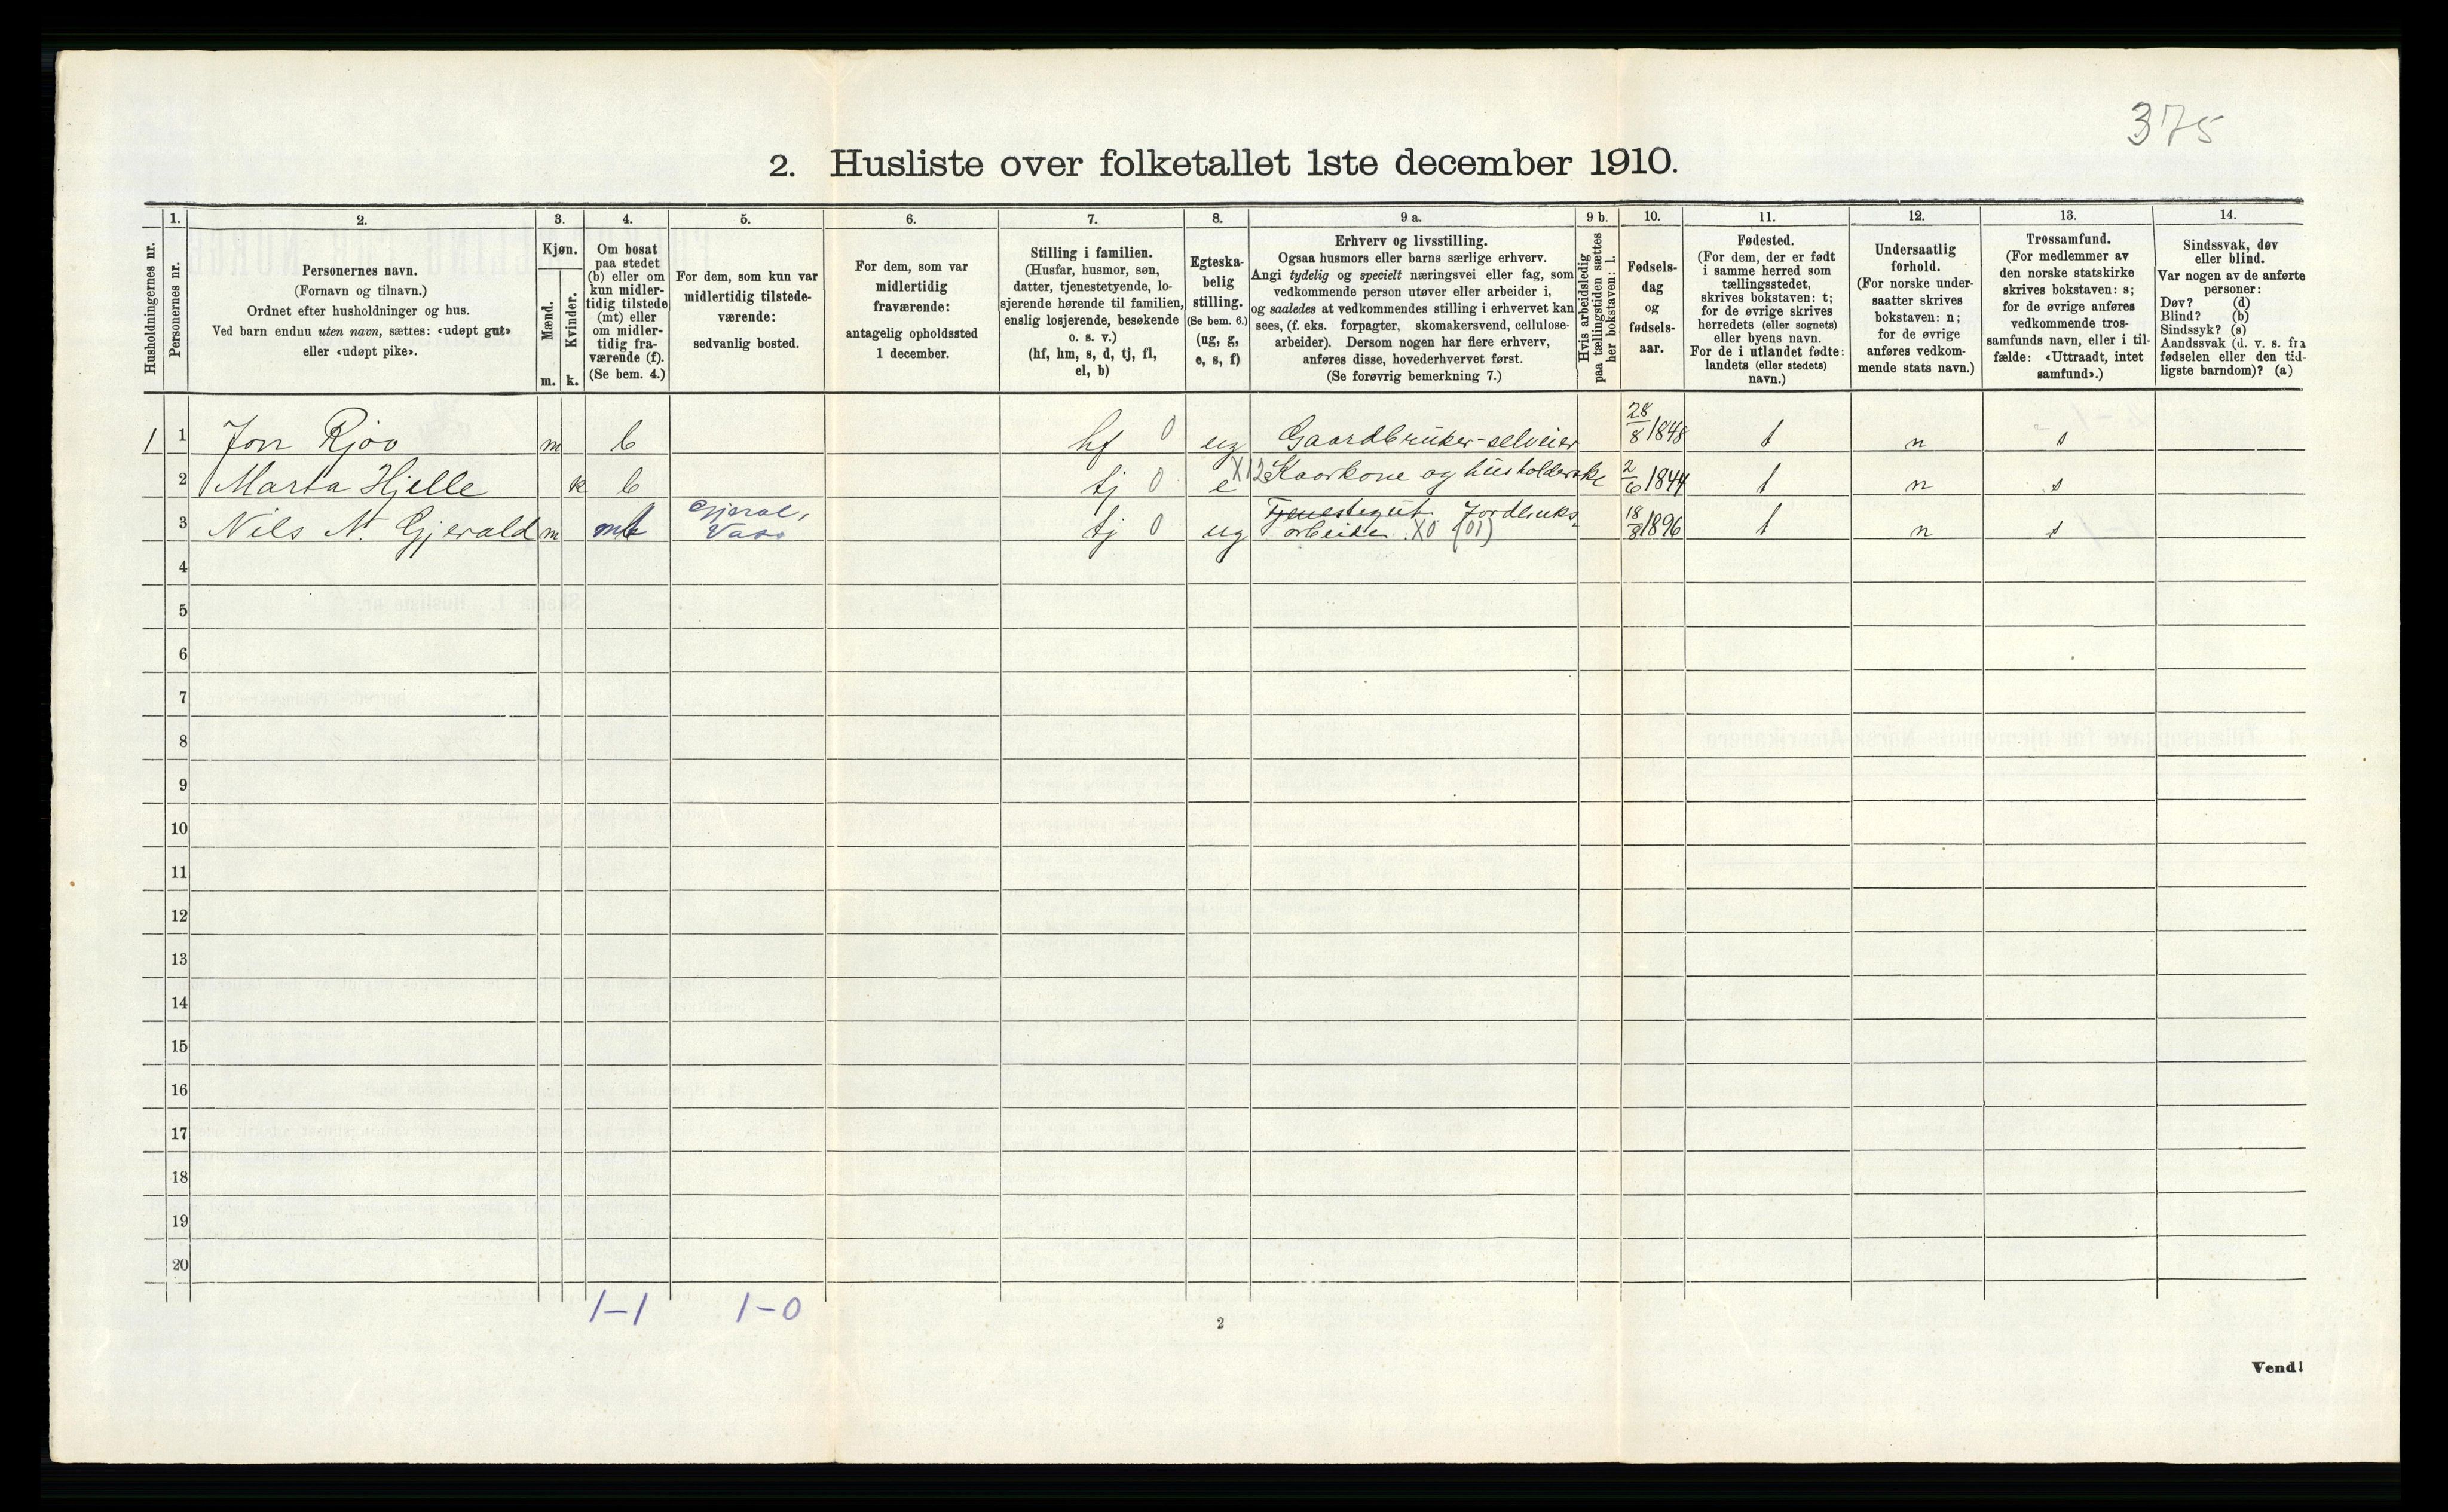 375
2. Husliste over folketallet 1ste december 1910.
Husholdningernes nr.
1.
Personernes nr.
2.
Personernes navn.
(Fornavn og tilnavn.)
Ordnet efter husholdninger og hus.
Ved barn endnu uten navn, sættes: «udøpt gut»
eller «udøpt pike».
3.
Kjøn.
Mænd.
Kvinder.
m. k.
4.
Om bosat
paa stedet
(b) eller om
kun midler-
tidig tilstede
(mt) eller
om midler-
tidig fra-
værende (f).
(Se bem. 4.)
5.
For dem, som kun var
midlertidig tilstede-
værende:
sedvanlig bosted.
6.
For dem, som var
midlertidig
fraværende:
antagelig opholdssted
1 december.
7.
Stilling i familien.
(Husfar, husmor, søn,
datter, tjenestetyende, lo-
sjerende hørende til familien,
enslig losjerende, besøkende
o. s. v.)
(hf, hm, s, d, tj, fl,
el, b)
8.
Egteska-
belig
stilling.
(Se bem. 6.)
(ug, g,
e, s, f)
9 a.
Erhverv og livsstilling.
Ogsaa husmors eller barns særlige erhverv.
Angi tydelig og specielt næringsvei eller fag, som
vedkommende person utøver eller arbeider i,
og saaledes at vedkommendes stilling i erhvervet kan
sees, (f. eks. forpagter, skomakersvend, cellulose-
arbeider). Dersom nogen har flere erhverv,
anføres disse, hovederhvervet først.
(Se forøvrig bemerkning 7.)
9 b.
Hvis arbeidsledig
paa tællingstiden sættes
her bokstaven: l.
10.
Fødsels-
dag
og
fødsels-
aar.
11.
Fødested.
(For dem, der er født
i samme herred som
tællingsstedet,
skrives bokstaven: t;
for de øvrige skrives
herredets (eller sognets)
eller byens navn.
For de i utlandet fødte:
landets (eller stedets)
navn.)
12.
Undersaatlig
forhold.
(For norske under-
saatter skrives
bokstaven: n;
for de øvrige
anføres vedkom-
mende stats navn.)
13.
Trossamfund.
(For medlemmer av
den norske statskirke
skrives bokstaven: s;
for de øvrige anføres
vedkommende tros-
samfunds navn, eller i til-
fælde: «Uttraadt, intet
samfund».)
14.
Sindssvak, døv
eller blind.
Var nogen av de anførte
personer:
Døv? (d)
Blind? (b)
Sindssyk? (s)
Aandssvak (d. v. s. fra
fødselen eller den tid-
ligste barndom)? (a)
1 1 Jon Rjoo m b hf 0 ug Gaardbruker-selveier 28/8 1848 t n s
2 Marta Hjelle k b tj 0 e X12 Kaarkone og husholderske 2/6 1844 t n s
3 Nils N. Gjerald m mt Gjeral, Vass tj 0 ug Tjenestegut Jordbruks-
arbeider X0 (01) 18/8 1896 t n s
4
5
6
7
8
9
10
11
12
13
14
15
16
17
18
19
20
1-1 1-0
2
Vend!